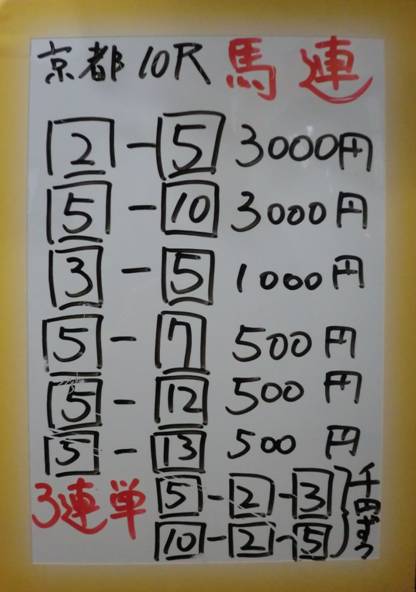 京都 10R 馬連
2 - 5 3000円
5 - 10 3000円
3 - 5 1000円
5 - 7 500円
5 - 12 500円
5 - 13 500円
3連単 5 - 2 - 3
10 - 2 - 5
千円ずつ